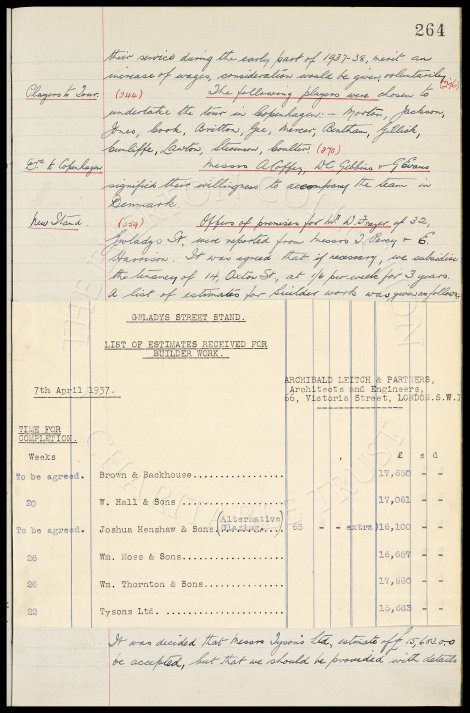 264
their service during the early part of 1937-38, merit an
increase of wages, consideration would be given voluntarily.
(296)
Players to Tour. (244) The following players were chosen to
undertake the tour in Copenhagen:- Morton, Jackson,
Jones, Cook, Britton, Gee, Mercer, Bentham, Gillick,
Cunliffe, Lawton, Stevenson, Coulter. (270)
Do. to Copenhagen Messrs A. Coffey, W.C. Gibbins & G. Evans
signified their willingness to accompany the team in
Denmark
New Stand. (259) Offers of premises for Mr. D. Frazer of 32,
Gwladys St., were reported from Messrs J. Percy & E.
Harrison. It was agreed that if necessary, we subsidise
the tenancy of 14, Oxton St., at 1/6 per week for 3 years.
A list of estimates for builder work was given as follows:-
GWLADYS STREET STAND.
LIST OF ESTIMATES RECEIVED FOR
BUILDER WORK.
7th April 1937.
ARCHIBALD LEITCH & PARTNERS,
Architects and Engineers,
66, Victoria Street, LONDON.S.W.1
TIME FOR
COMPLETION.
Weeks £ s d
To be agreed. Brown & Backhouse................ 17,650 - -
20 W. Hall & Sons.................. 17,061 - -
To be agreed. Joshua Henshaw & Sons(Alternative Glazing.... 65 - - extra) 16,100 - -
26 Wm. Moss & Sons................. 16,657 - -
26 Wm. Thornton & Sons............. 17,580 - -
22 Tysons Ltd. .................... 15,683 - -
It was decided that Messrs Tyson's Ltd, estimate of £15,683.0.0
be accepted, but that we should be provided with details
THE EVERTON COLLECTION
CHARITABLE TRUST